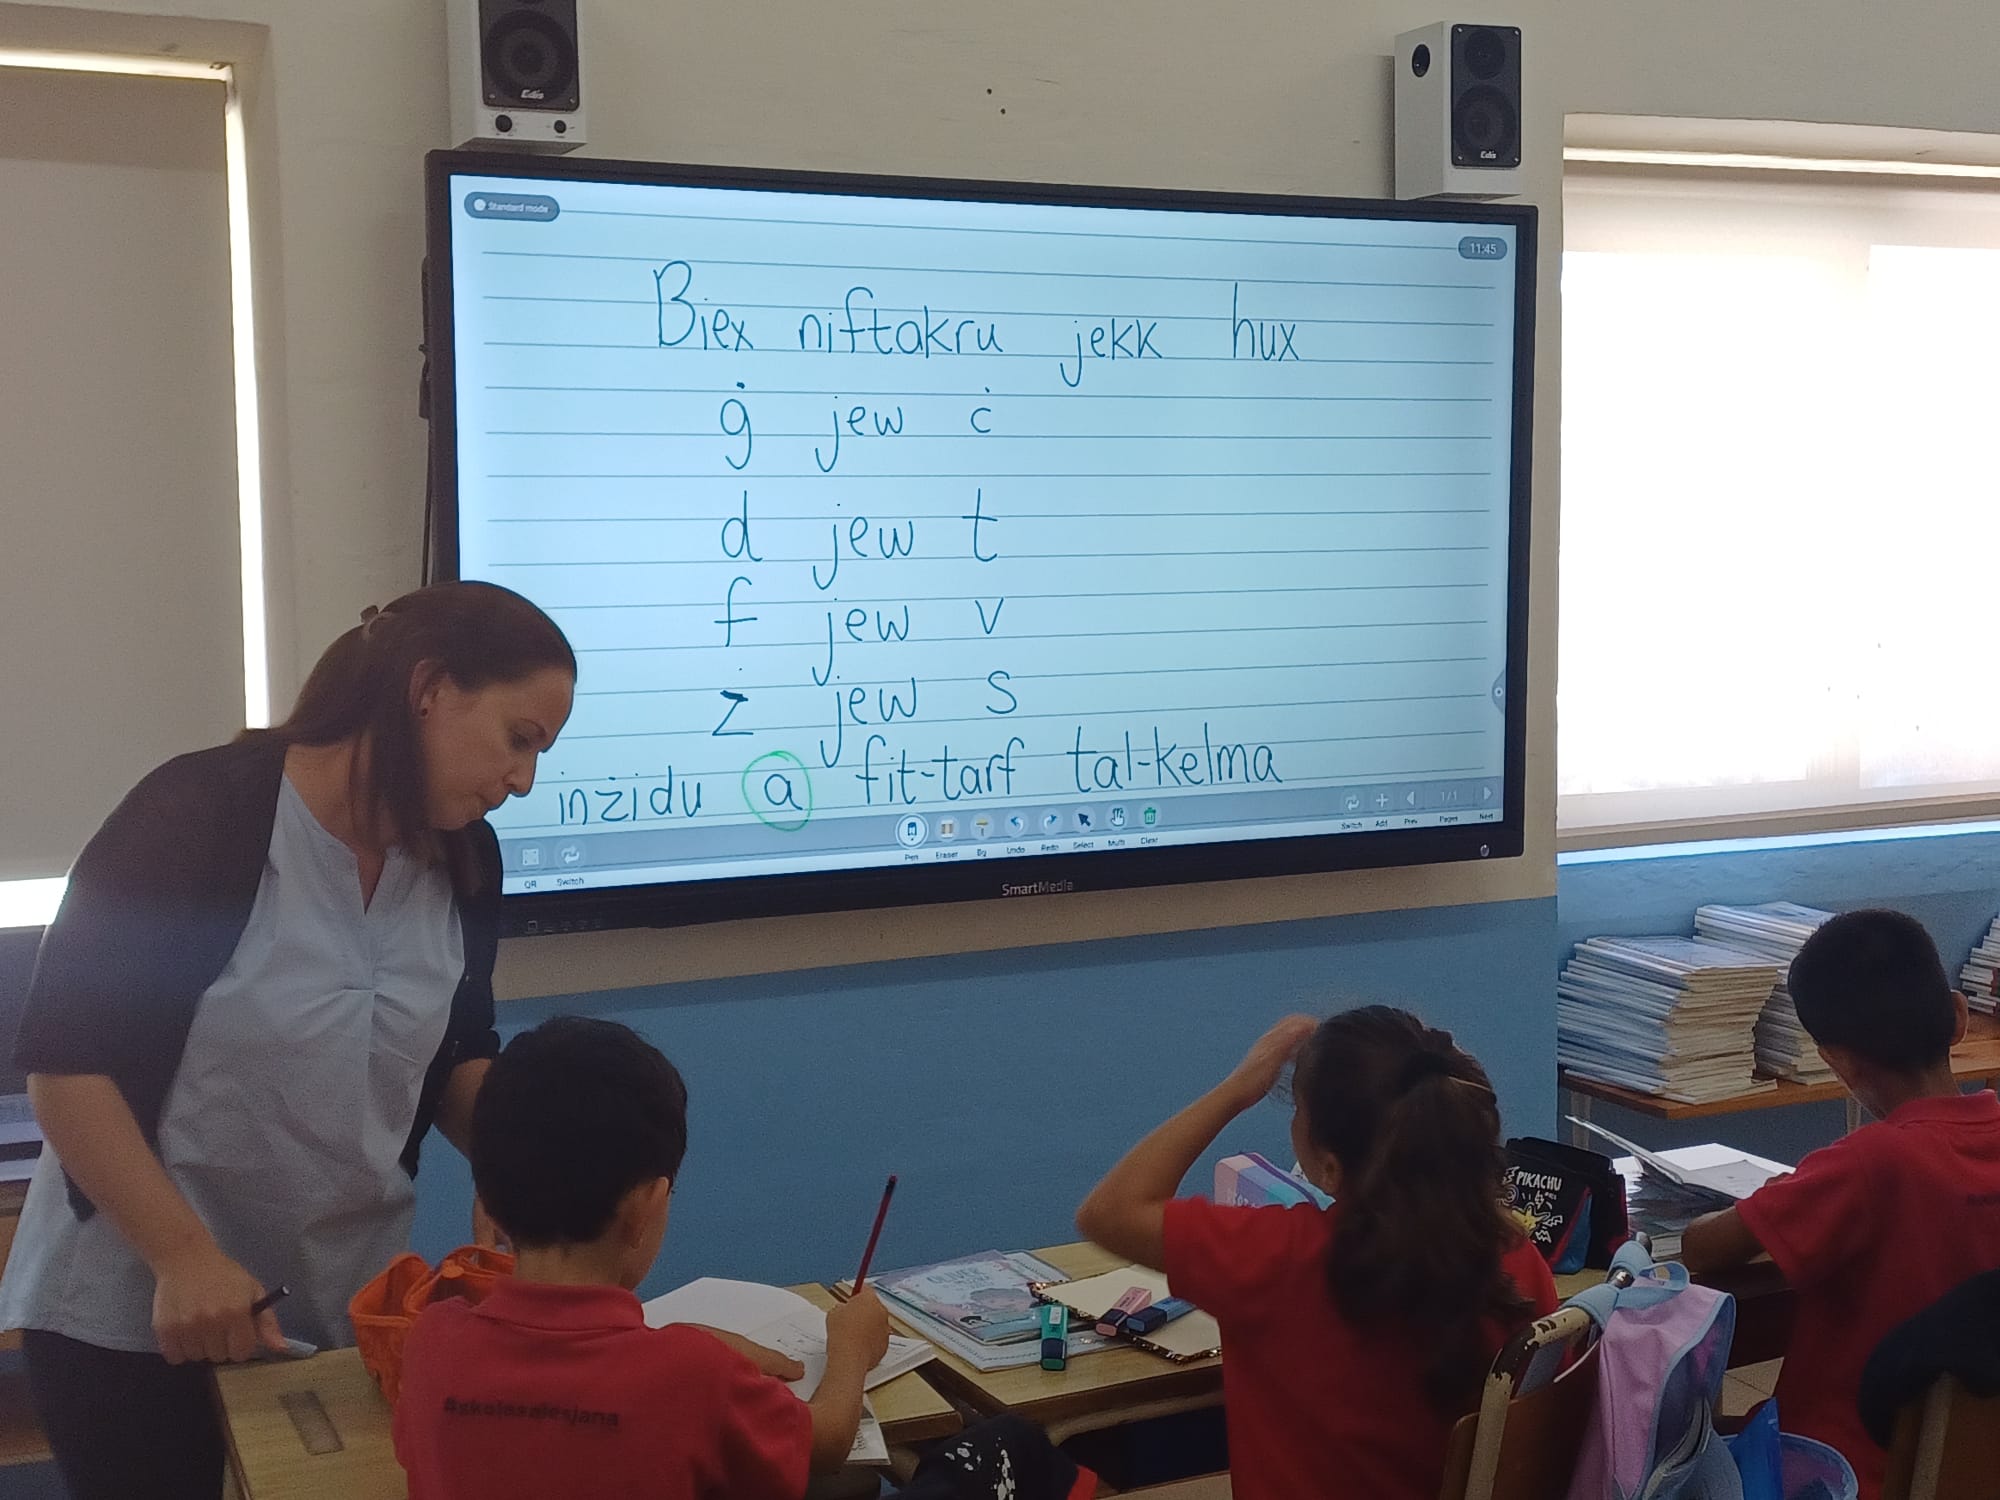 Edis
Edis
Standard mode
11:45
Biex niftakru jekk hux
ġ jew ċ
d jew t
f jew v
ż jew s
inżidu a fit-tarf tal-kelma
QR Switch Pen Eraser Undo Redo Select Multi Clear Switch Add Prev 1/1 Pages Next
SmartMedia
PIKACHU
#skolasalesjana